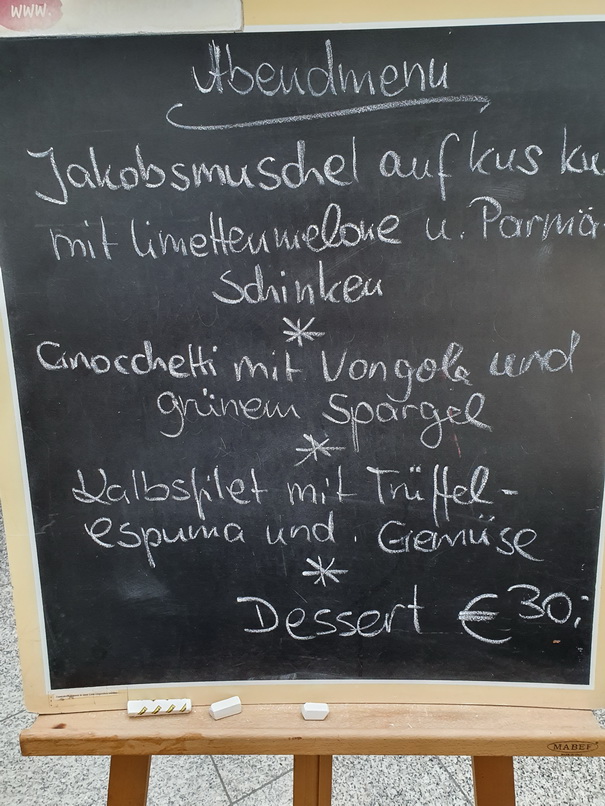 www.
Abendmenu
Jakobsmuschel auf kus ku
mit limettenmelone u. Parma-
Schinken
*
Gnocchetti mit Vongola und
grünem Spargel
*
Kalbsfilet mit Trüffel-
espuma und. Gemüse
*
Dessert €30,-
MABEF